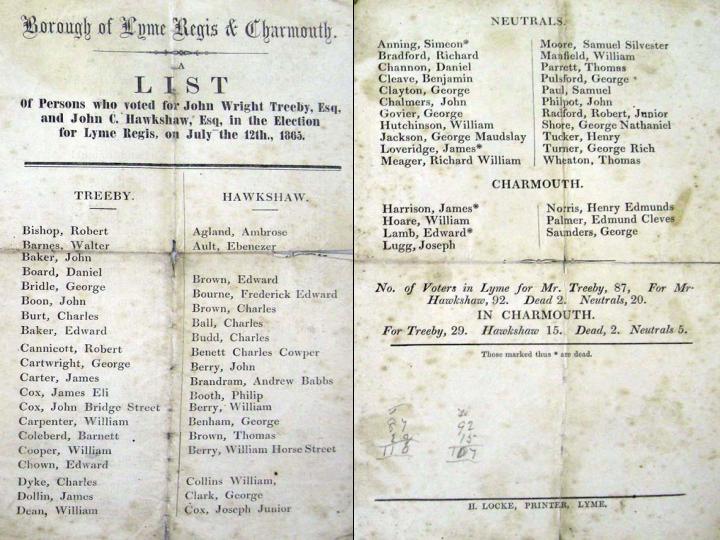 Borough of Lyme Regis & Charmouth.
A
LIST
Of Persons who voted for John Wright Treeby, Esq.
and John C. Hawkshaw, Esq. in the Election
for Lyme Regis, on July the 12th., 1865.
TREEBY.
Bishop, Robert
Barnes, Walter
Baker, John
Board, Daniel
Bridle, George
Boon, John
Burt, Charles
Baker, Edward
Cannicott, Robert
Cartwright, George
Carter, James
Cox, James Eli
Cox, John Bridge Street
Carpenter, William
Coleberd, Barnett
Cooper, William
Chown, Edward
Dyke, Charles
Dollin, James
Dean, William
HAWKSHAW.
Agland, Ambrose
Ault, Ebenezer
Brown, Edward
Bourne, Frederick Edward
Brown, Charles
Ball, Charles
Budd, Charles
Benett Charles Cowper
Berry, John
Brandram, Andrew Babbs
Booth, Philip
Berry, William
Benham, George
Brown, Thomas
Berry, William Horse Street
Collins William,
Clark, George
Cox, Joseph Junior
NEUTRALS.
Anning, Simeon*
Bradford, Richard
Channon, Daniel
Cleave, Benjamin
Clayton, George
Chalmers, John
Govier, George
Hutchinson, William
Jackson, George Maudslay
Loveridge, James*
Meager, Richard William
Moore, Samuel Silvester
Manfield, William
Parrett, Thomas
Pulsford, George
Paul, Samuel
Philpot, John
Radford, Robert, Junior
Shore, George Nathaniel
Tucker, Henry
Turner, George Rich
Wheaton, Thomas
CHARMOUTH.
Harrison, James*
Hoare, William
Lamb, Edward*
Lugg, Joseph
Norris, Henry Edmunds
Palmer, Edmund Cleves
Saunders, George
No. of Voters in Lyme for Mr. Treeby, 87, For Mr.
Hawkshaw, 92. Dead 2. Neutrals, 20.
IN CHARMOUTH.
For Treeby, 29. Hawkshaw 15. Dead, 2. Neutrals 5.
Those marked thus * are dead.
92
15
107
H. LOCKE, PRINTER, LYME.